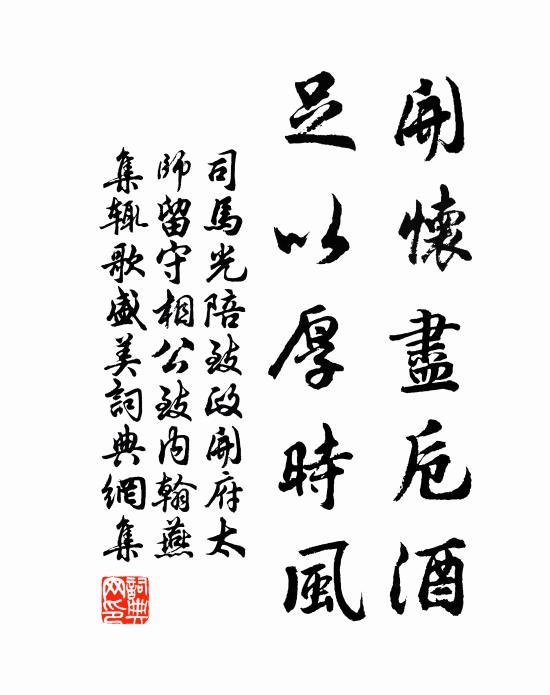 開懷盡卮酒
足以厚時風
司馬光陪致政開府太
師留守相公致內翰燕
集輒歌盛美詞典網集
詞典
网印